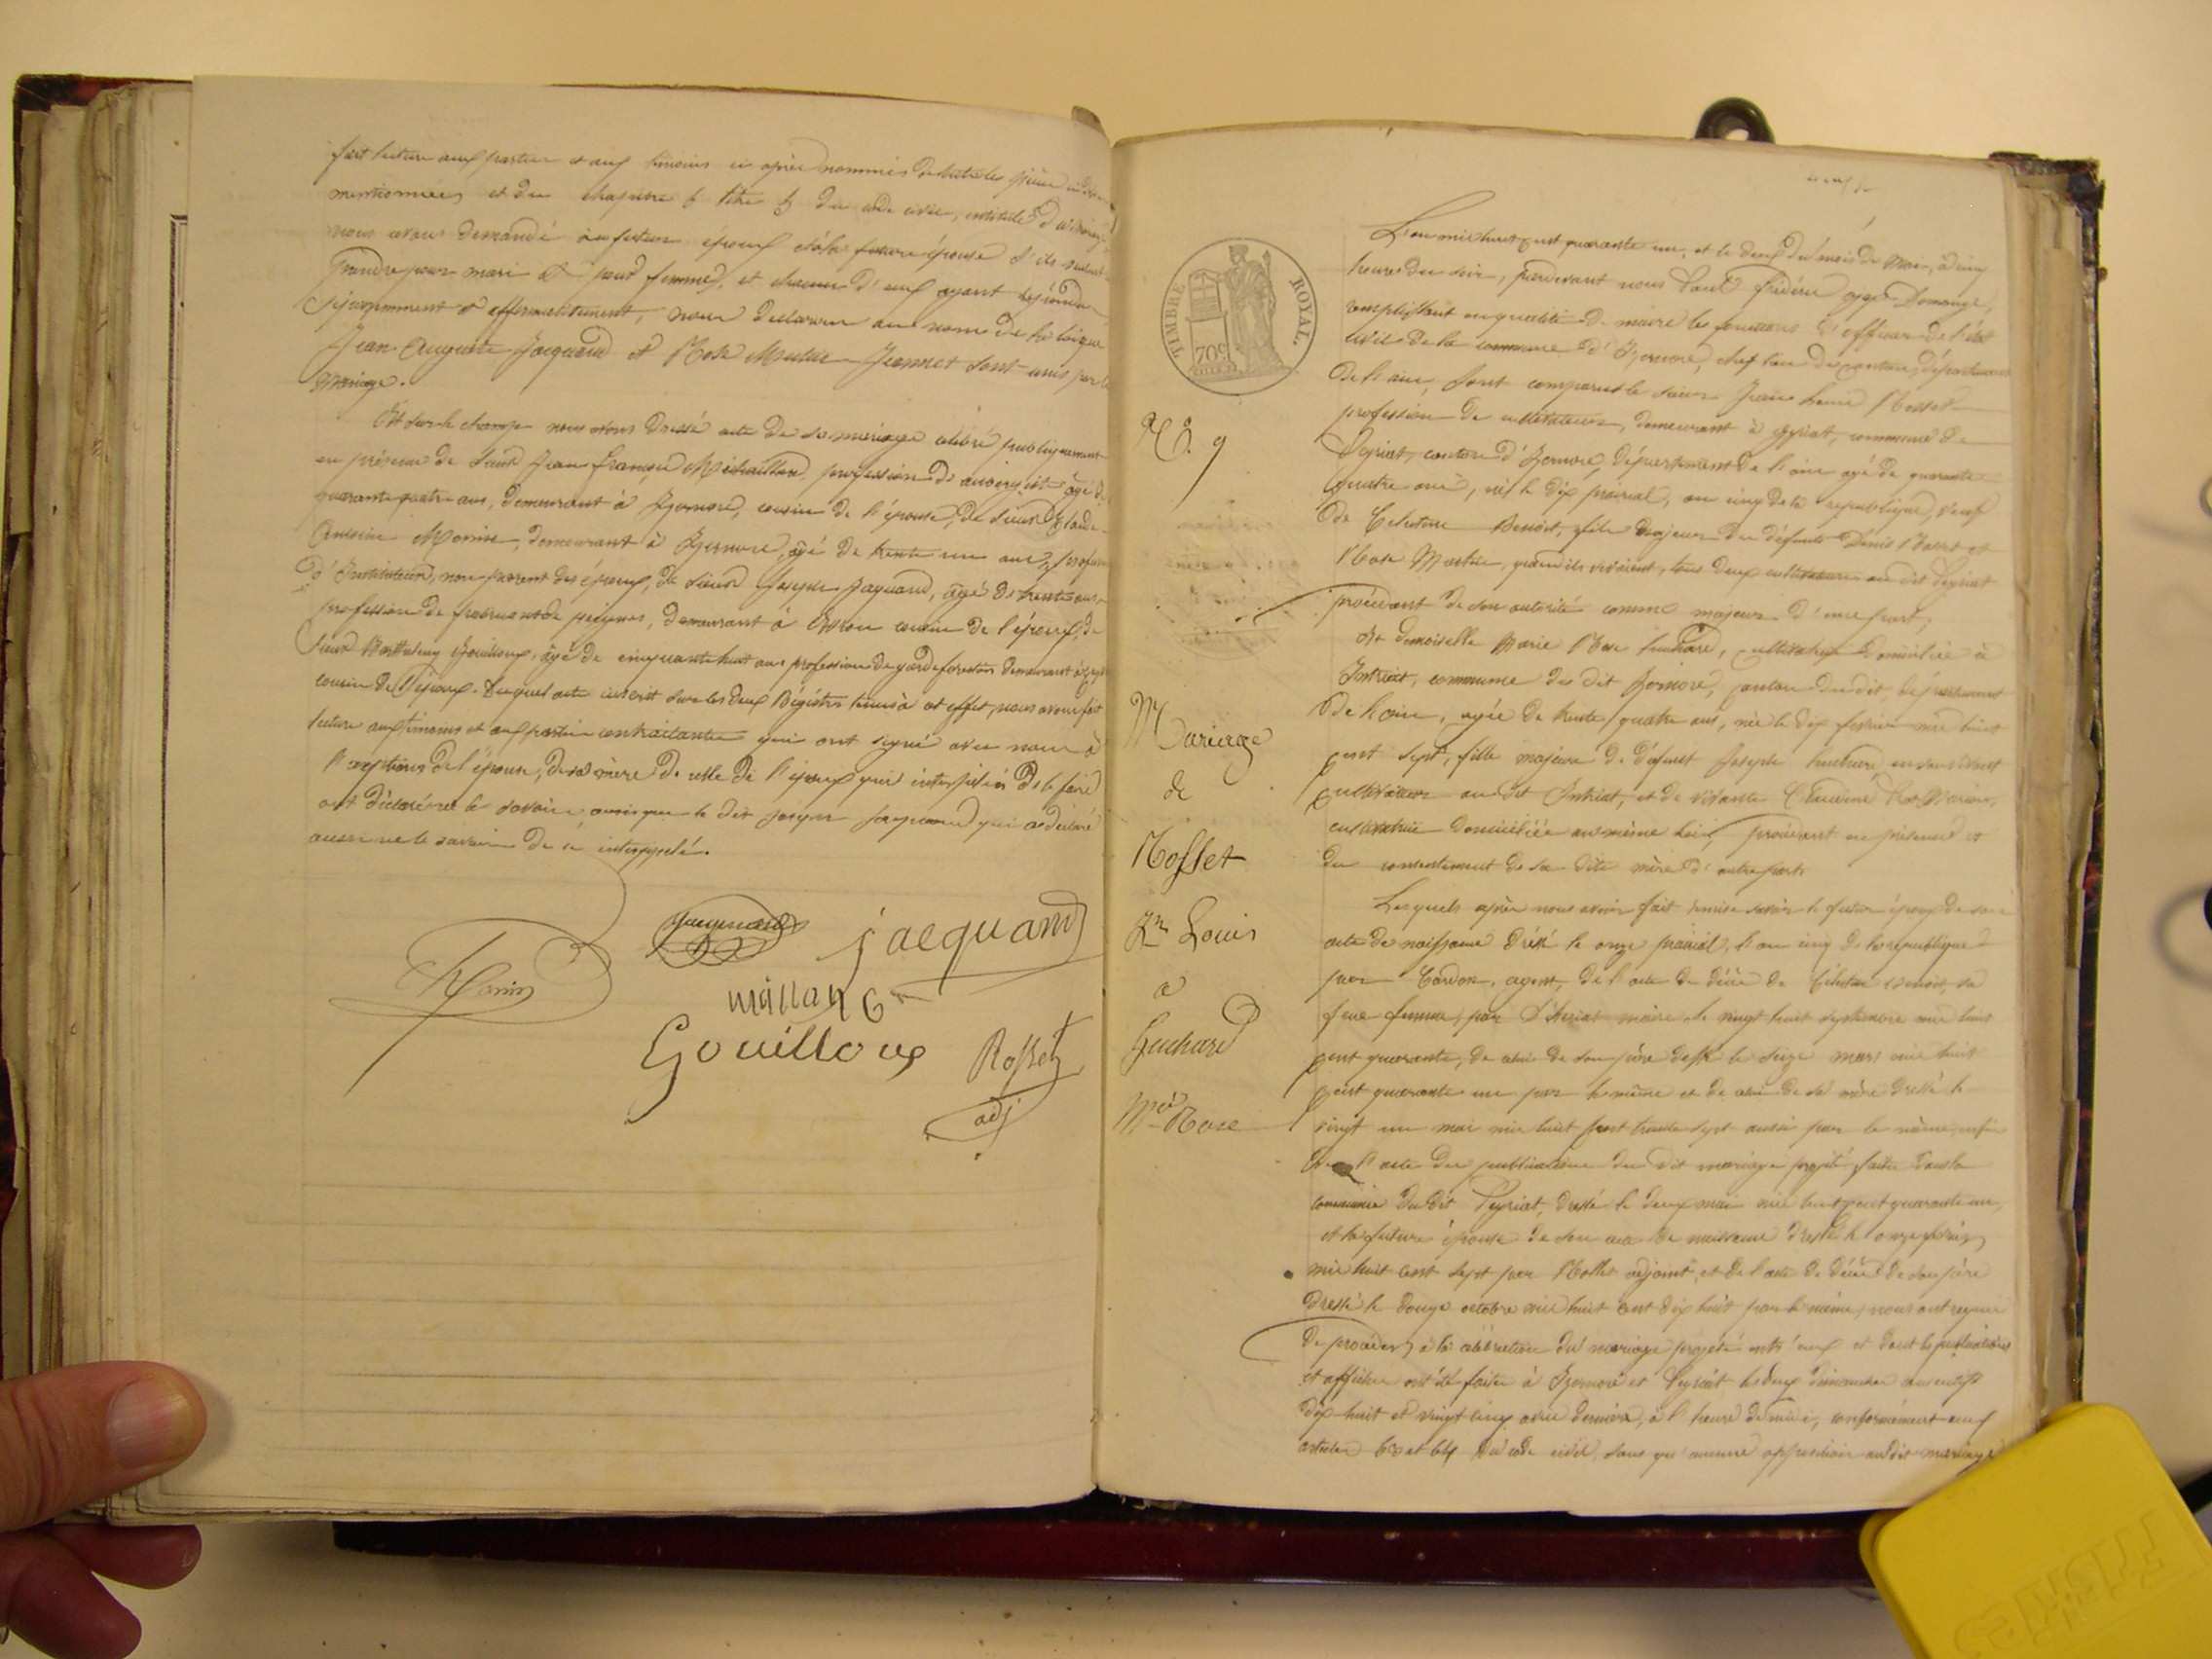 fait lecture aux parties et aux témoins ci après nommés de toutes les pièces
mentionnées et du chapitre 6 titre 5 du code civil, intitulé
nous avons demandé au futur époux et à la future épouse s'ils veulent
prendre pour mari et pour femme, et chacun d'eux ayant répondu
séparemment et affirmativement, nous déclarons au nom de la loi que
Jean Auguste Jacquand et Rose Jeannet sont unis par le
mariage.
Et sur le champ nous avons dressé acte de ce mariage célébré publiquement
en présence de sieur Jean François profession de aubergiste âgé de
quarante quatre ans, demeurant à Izernore, cousin de l'épouse, de sieur Claude
demeurant à Izernore, âgé de trente un ans, profession
d'Instituteur, non parent des époux, de sieur Joseph Jaquand, âgé de trente ans,
profession de de peignes, demeurant à cousin de l'époux, de
sieur Barthelemy Gouilloux, âgé de cinquante huit ans profession de garde forestier demeurant à
cousin de l'époux. Duquel acte inscrit sur les deux Régistres tenus à cet effet, nous avons fait
lecture aux témoins et aux parties contractantes qui ont signé avec nous à
l'exception de l'épouse, de sa mère de celle de l'époux qui interpellés de le faire
ont déclaré ne le savoir, ainsi que le dit Joseph Jaquand qui a déclaré
aussi ne le savoir de ce interpellé.
Jacquand
jacquand
Gouilloux
Rosset
adj
TIMBRE ROYAL.
70c
N.º 9
Mariage
de
Rosset
Jn Louis
a
Huchard
Mie Rose
L'an mil huit cent quarante un, et le deux du mois de Mai, à cinq
heures du soir, pardevant nous Paul Domange,
remplissant en qualité de maire les fonctions d'officier de l'état
civil de la commune d'Izernore, chef lieu de canton, département
de l'ain, sont comparus le sieur Jean Louis Rosset
profession de cultivateur, demeurant à Peyriat, commune de
Peyriat, canton d'Izernore, département de l'ain âgé de quarante
quatre ans, né le dix prairial, an cinq de la république, veuf
de Benoit, fils majeur des défunts Denis Rosset et
Rose quand ils vivaient, tous deux cultivateurs au dit Peyriat
procédant de son autorité comme majeur d'une part,
Et demoiselle Marie Rose Huchard, cultivatrice domiciliée à
Intriat, commune du dit Izernore, canton du dit, département
de l'ain, âgée de trente quatre ans, née le dix février mil huit
cent sept, fille majeure de défunt Joseph Huchard en son vivant
cultivateur au dit Intriat, et de vivante Claudine
cultivatrice domiciliée au même lieu, procédant en présence et
du consentement de sa dite mère d'autre part.
Lesquels après nous avoir fait remise savoir le futur époux de son
acte de naissance dréssé le onze prairial, l'an cinq de la république
par Cardon, agent, de l'acte de décès de Benoit, sa
feue femme, par maire le vingt huit septembre mil huit
cent quarante, de celui de son père dressé le seize mars mil huit
cent quarante un par le même et de celui de sa mère dressé le
vingt un mai mil huit cent trente sept aussi par le même, enfin
de l'acte des publications du dit mariage projeté faites dans la
commune du dit Peyriat, dressé le deux mai mil huit cent quarante un,
et la future épouse de son acte de naissance dressé le onze février
mil huit cent sept par Rollet adjoint, et de l'acte de décès de son père
dressé le douze octobre mil huit cent dix huit par le même, nous ont requis
de procéder à la célébration du mariage projeté entr'eux et dont les publications
et affiches ont été faites à Izernore et Peyriat les deux dimanches
dix huit et vingt cinq avril dernier, à l'heure de midi, conformément aux
articles 63 et 64 du code civil, sans qu'aucune opposition audit mariage